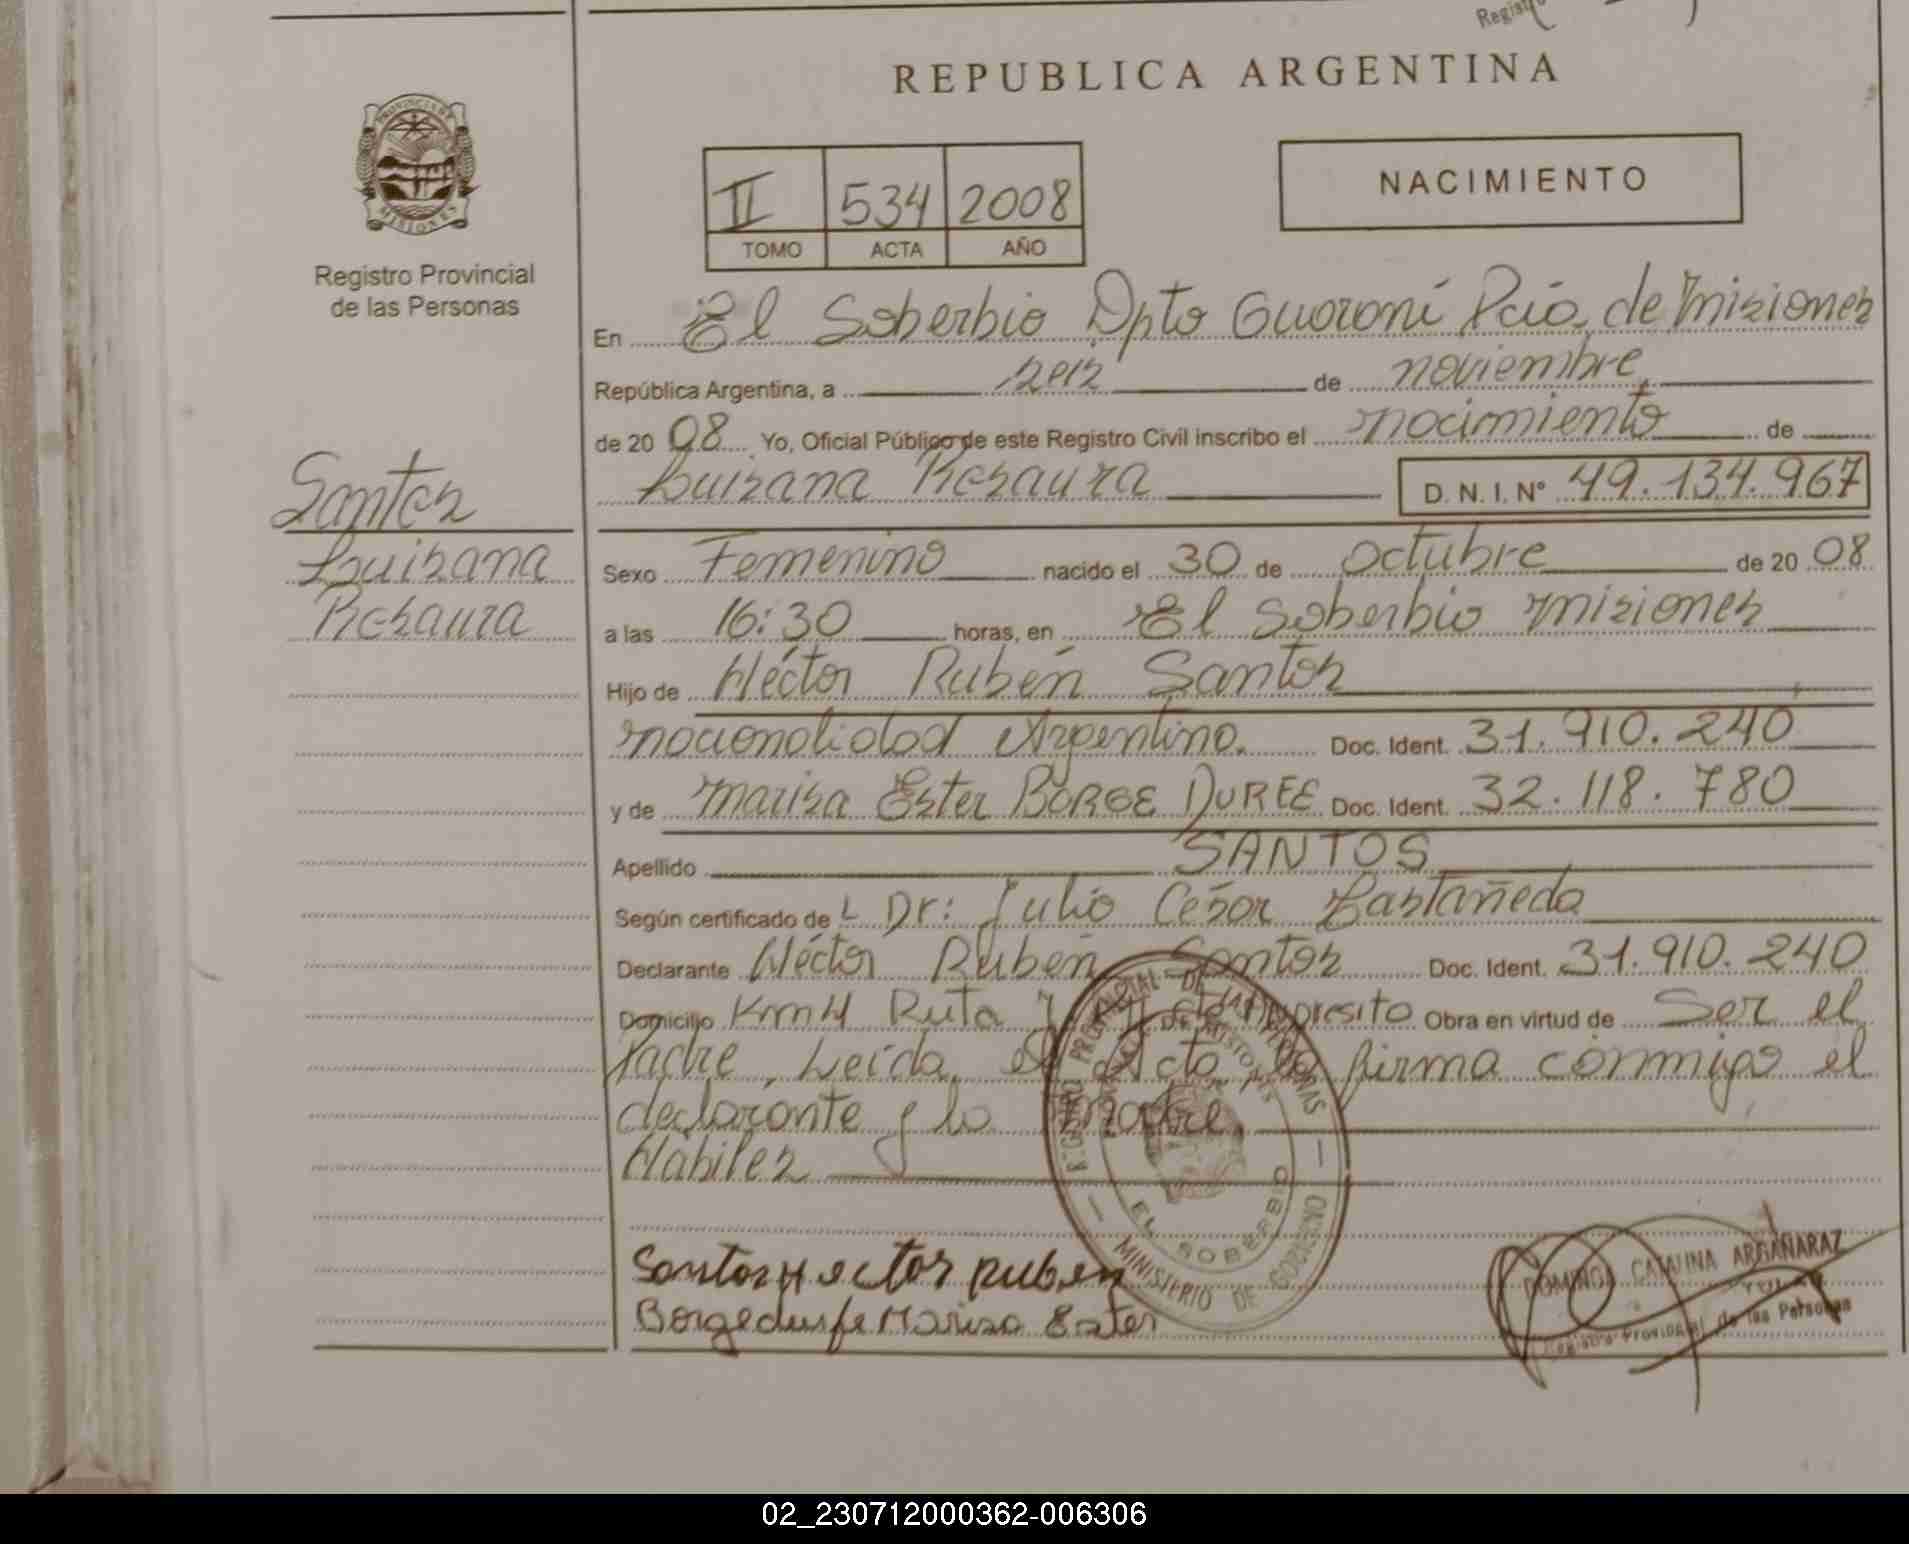 REPUBLICA ARGENTINA
PROVINCIA DE MISIONES
Registro Provincial
de las Personas
II 534 2008
TOMO ACTA AÑO
NACIMIENTO
En El Soberbio Dpto Guaraní Pcia de Misiones
República Argentina, a doce de noviembre
de 2008 Yo, Oficial Público de este Registro Civil inscribo el nacimiento de
Luisana Rosaura D.N.I. Nº 49.134.967
Santos
Luisana
Rosaura
Sexo Femenino nacido el 30 de Octubre de 2008
a las 16:30 horas, en El Soberbio Misiones
Hijo de Héctor Rubén Santos
nacionalidad Argentina. Doc. Ident. 31.910.240
y de Marisa Ester BORGE DUREE Doc. Ident. 32.118.780
Apellido SANTOS
Según certificado de L Dr: Julio César Castañeda
Declarante Héctor Rubén Santos Doc. Ident. 31.910.240
Domicilio Km 14 Ruta Obra en virtud de Ser el
Padre, Leída el Acta la firma conmigo el
declarante y la madre
Hábiles
REGISTRO PROVINCIAL DE LAS PERSONAS
MINISTERIO DE GOBIERNO
EL SOBERBIO
Santos Hector Ruben
Marisa Ester
CATALINA ARGAÑARAZ
Registro Provincial de las Personas
02_230712000362-006306